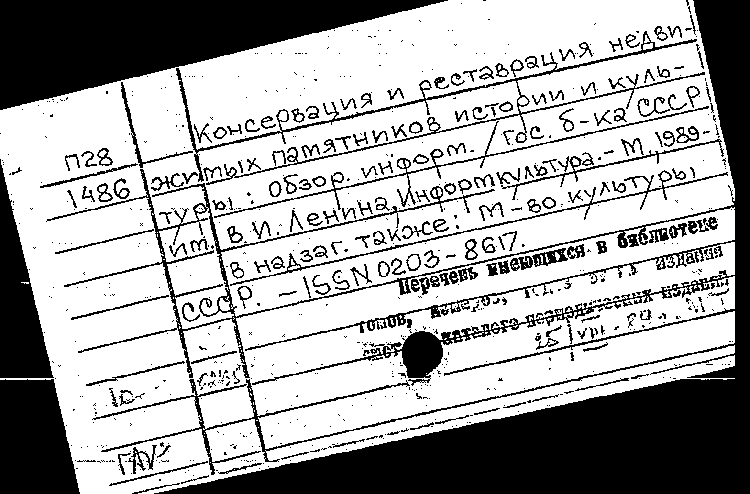 Консервация и реставрация недви-
П28 жимых памятников истории и куль-
1486 туры: Обзор. информ. / Гос. б-ка СССР
им. В. И. Ленина, Информкультура. - М., 1989-
В надзаг. также: М-во культуры
СССР. - ISSN 0203-8617.
Перечень имеющихся в библиотеке
томов, номеров, издания
каталоге периодических изданий
25
10